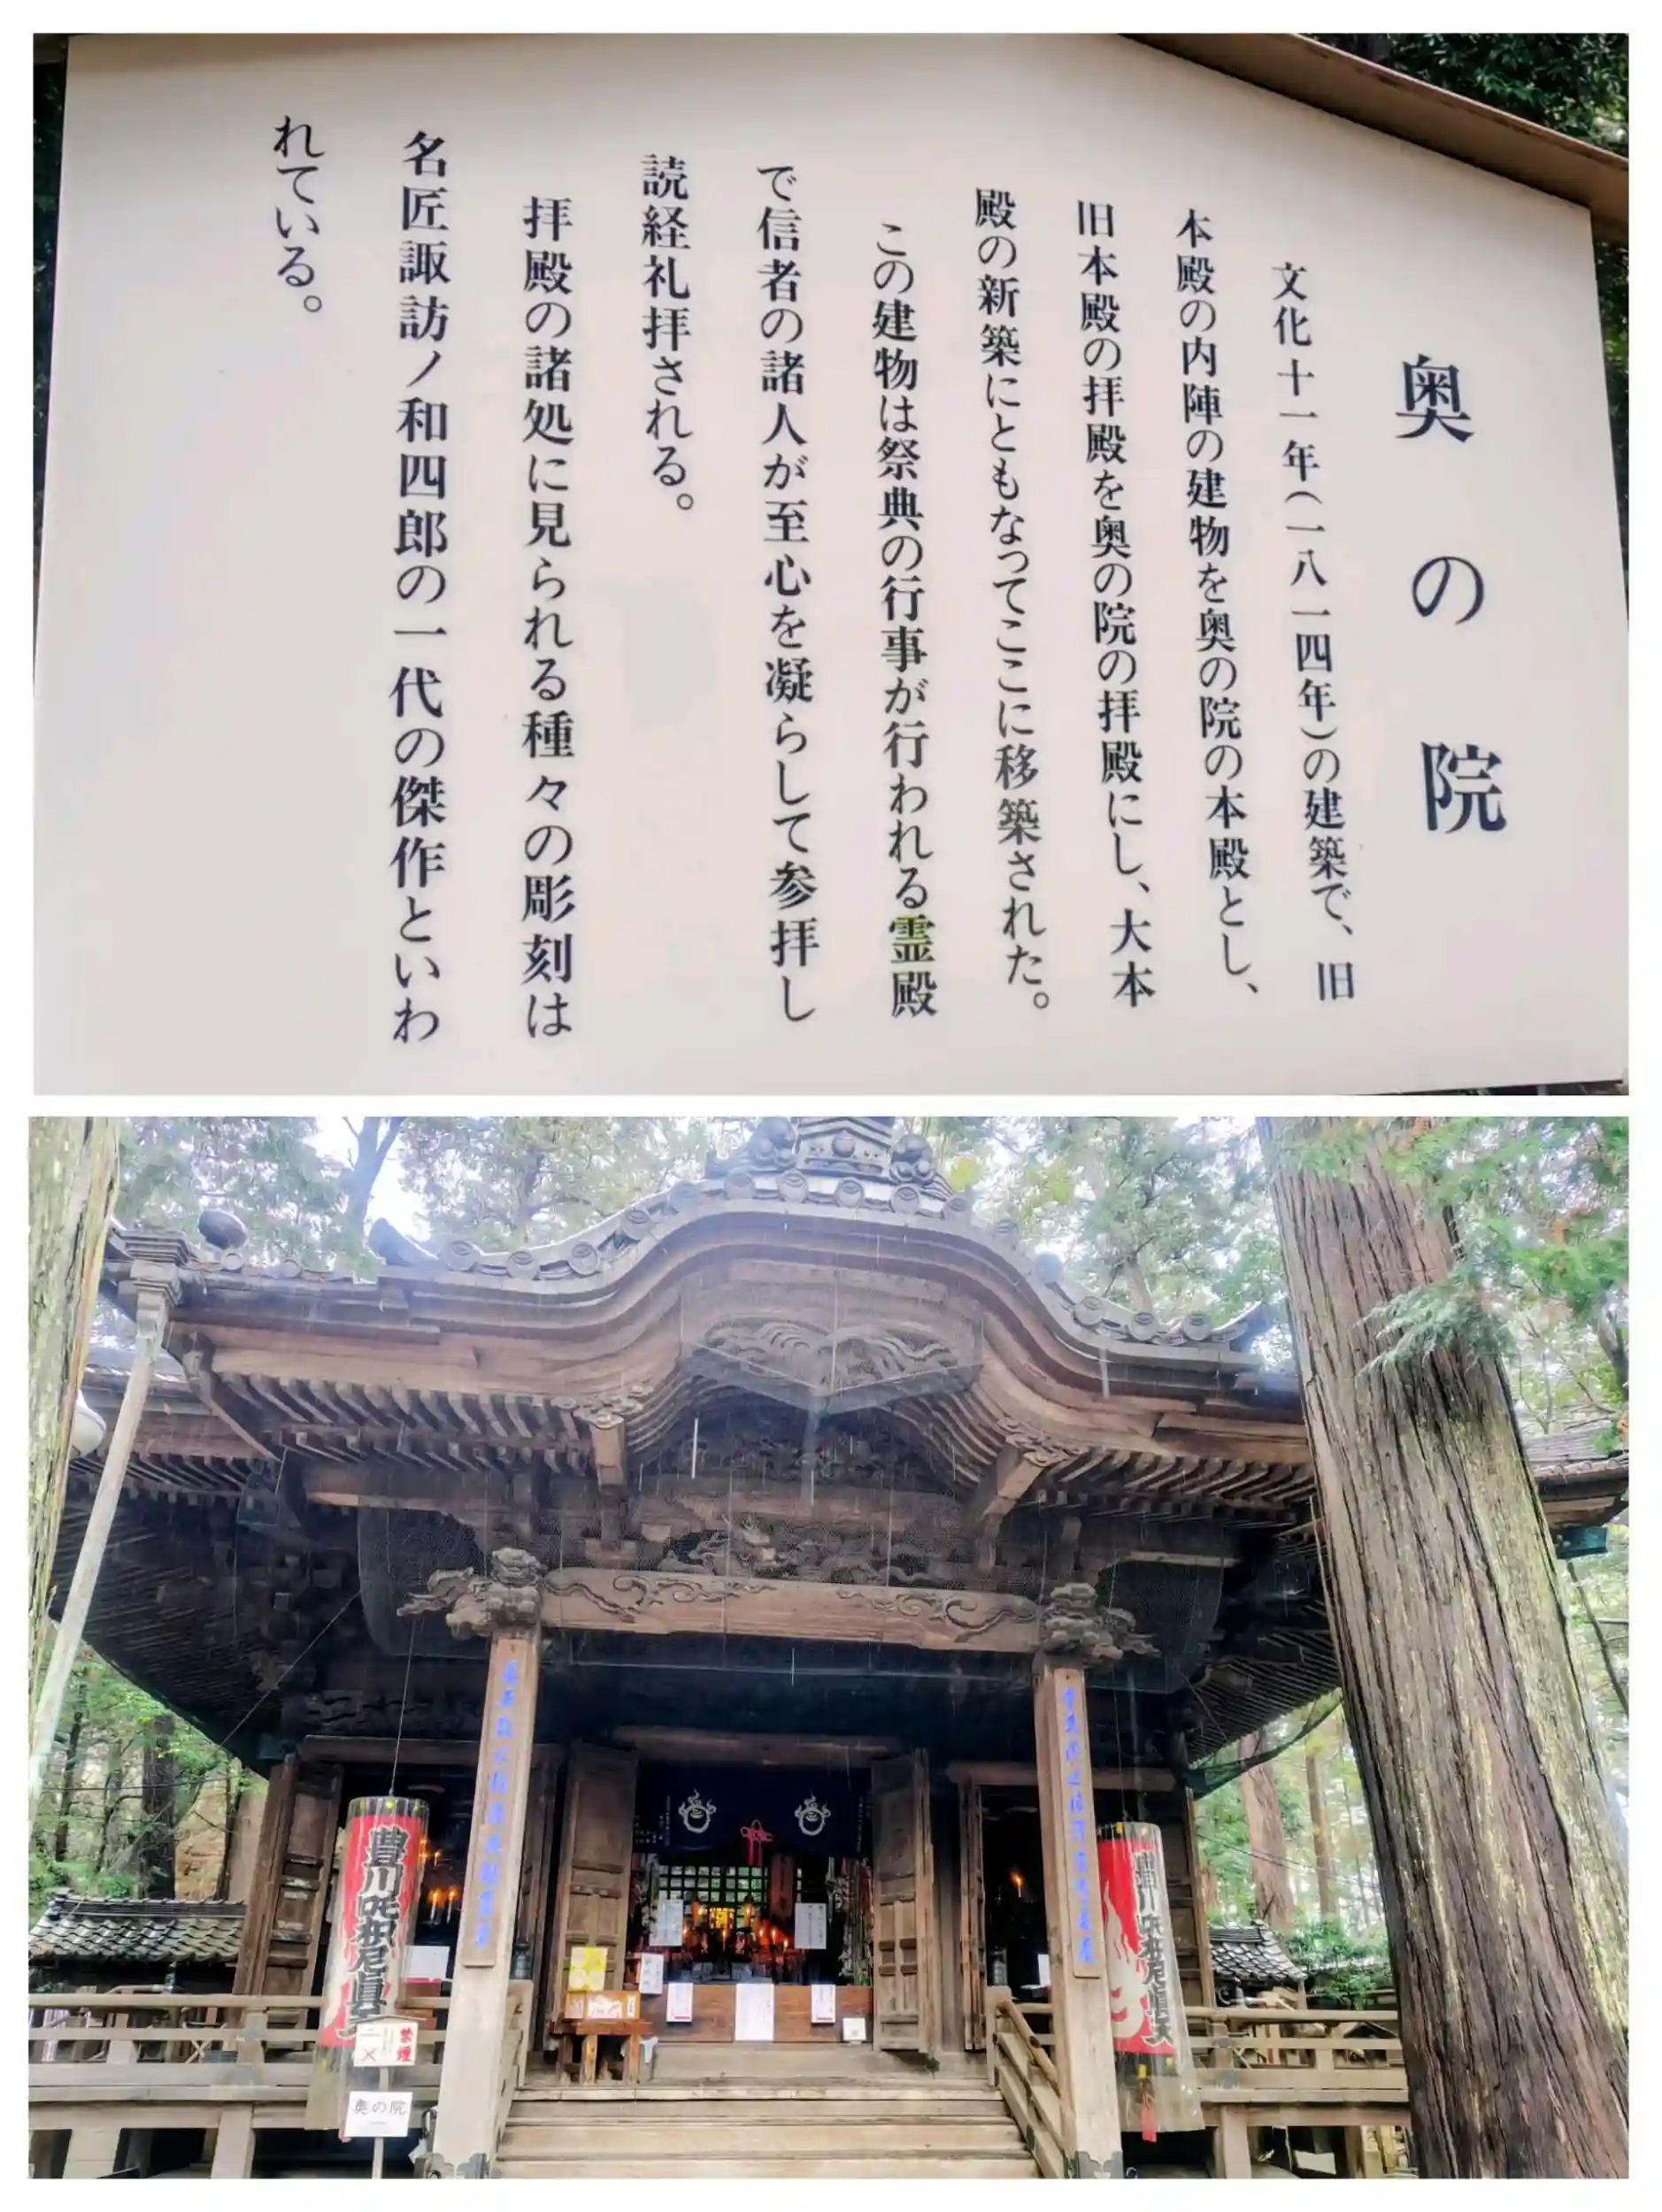 奥の院
文化十一年(一八一四年)の建築で、旧
本殿の内陣の建物を奥の院の本殿とし、
旧本殿の拝殿を奥の院の拝殿にし、大本
殿の新築にともなってここに移築された。
この建物は祭典の行事が行われる霊殿
で信者の諸人が至心を凝らして参拝し
読経礼拝される。
拝殿の諸処に見られる種々の彫刻は
名匠諏訪ノ和四郎の一代の傑作といわ
れている。
豊川吒枳尼眞
豊川吒枳尼眞天
禁煙
奥の院